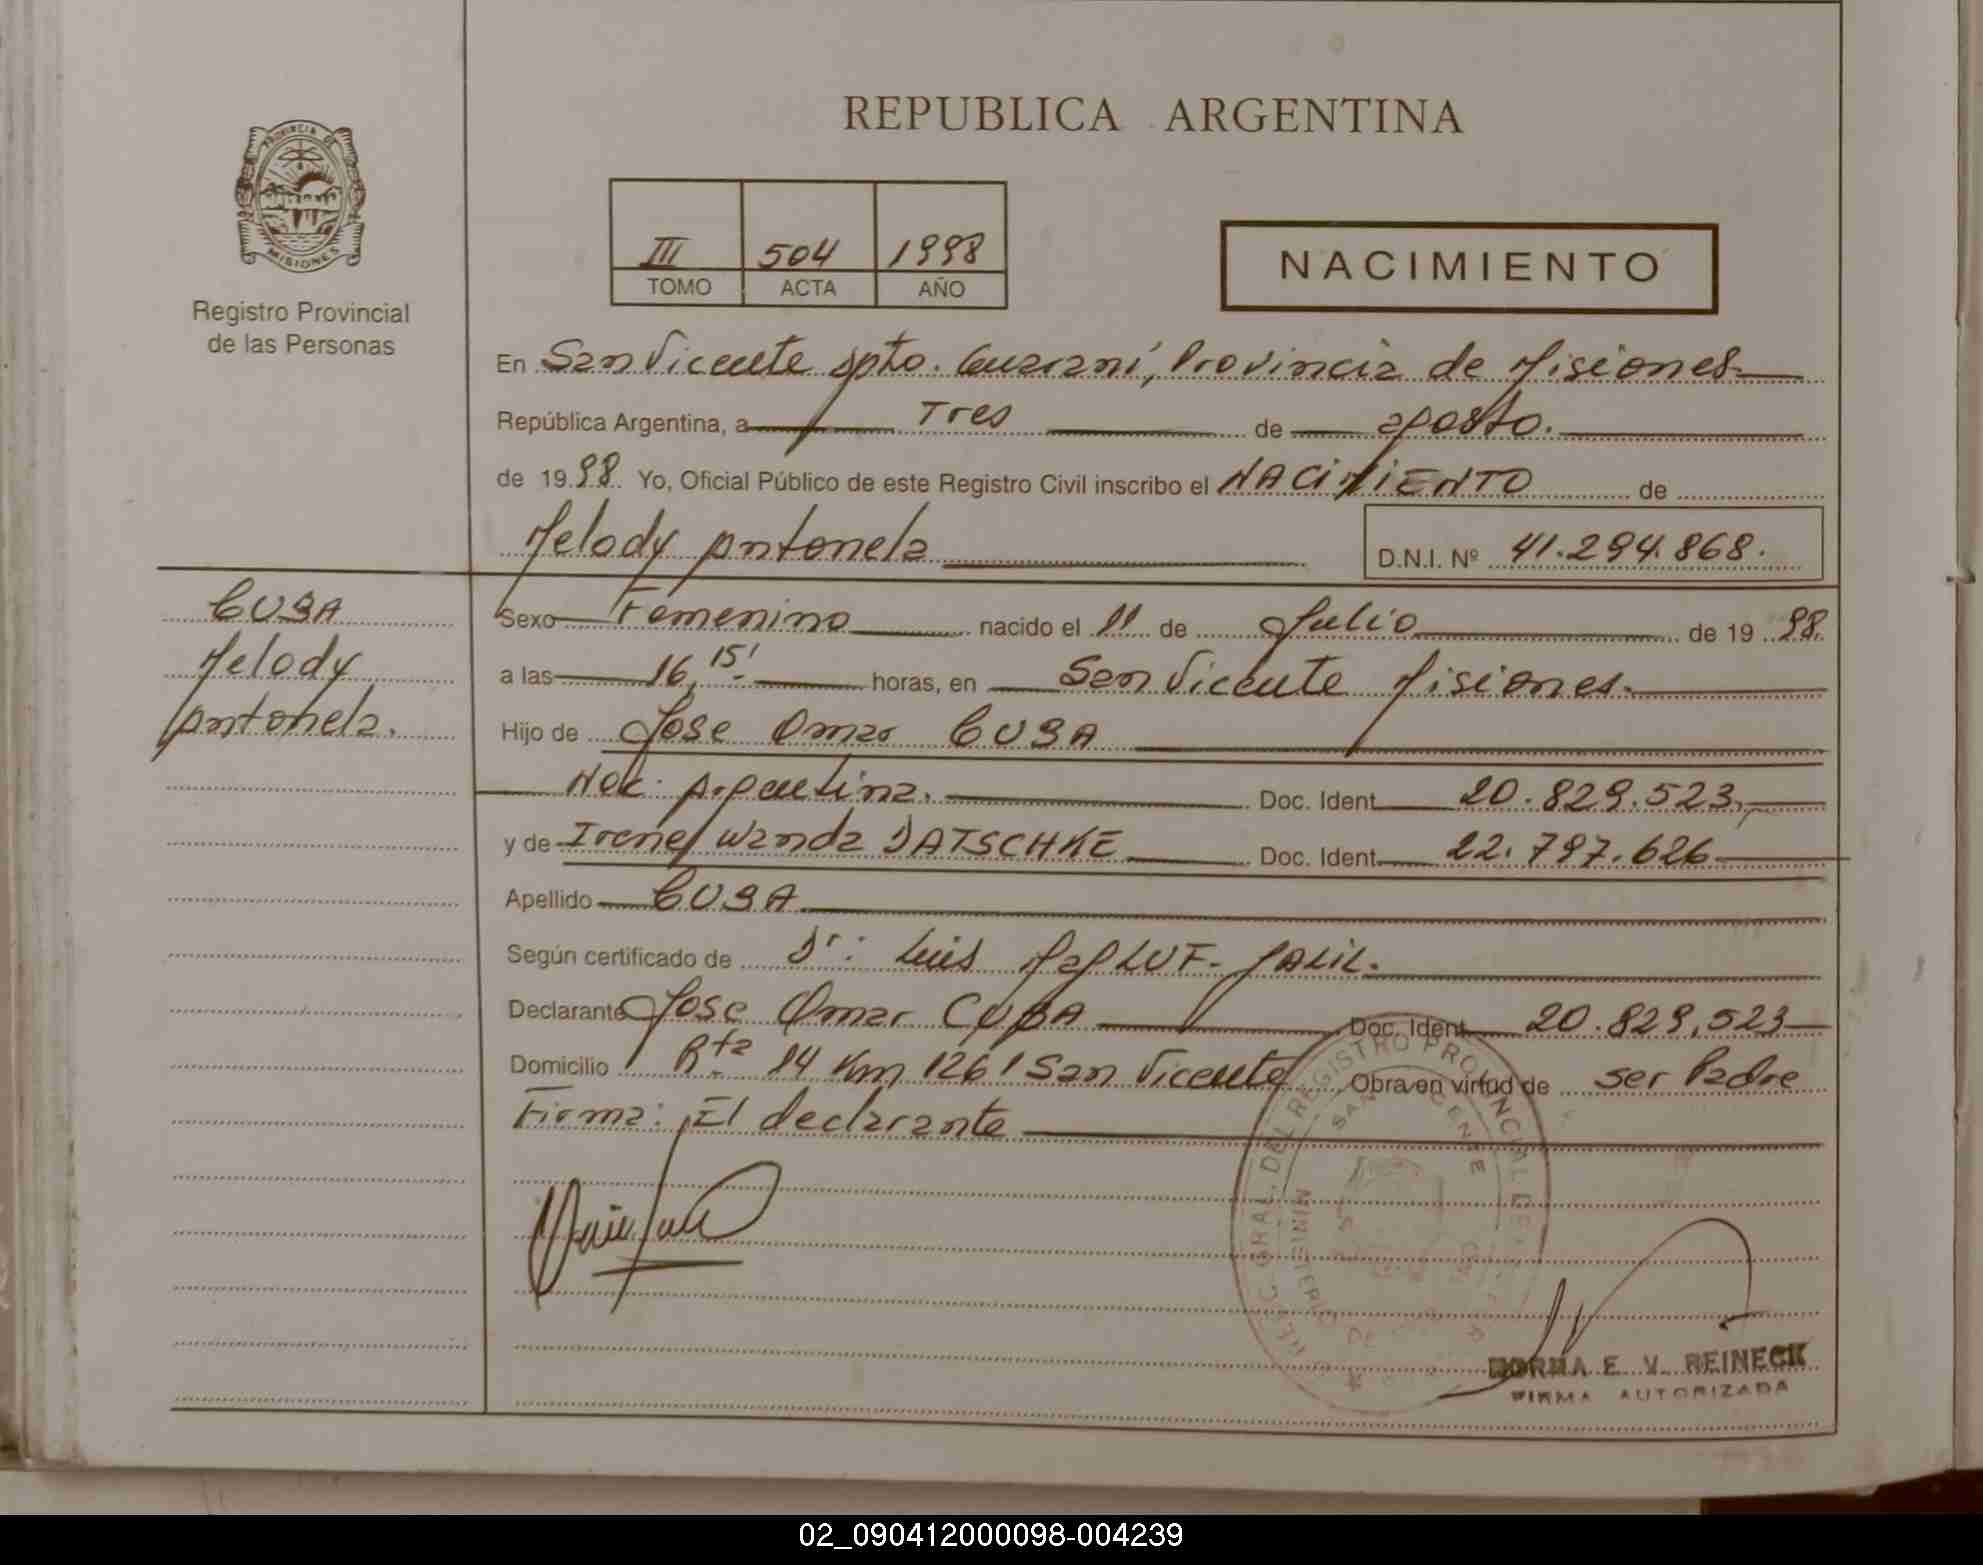 REPUBLICA ARGENTINA
PROVINCIA DE MISIONES
Registro Provincial
de las Personas
III 504 1998
TOMO ACTA AÑO
NACIMIENTO
En San Vicente Dpto. Guaraní, Provincia de Misiones
República Argentina, a Tres de agosto.
de 1998. Yo, Oficial Público de este Registro Civil inscribo el NACIMIENTO de
Melody Antonela D.N.I. Nº 41.294.868.
CUBA
Melody
Antonela.
Sexo Femenino nacido el 11 de Julio de 1998.
a las 16,15' horas, en San Vicente Misiones.
Hijo de Jose Omar CUBA
Nac. Argentina. Doc. Ident. 20.829.523,
y de Irene Wanda DATSCHKE Doc. Ident. 22.797.626
Apellido CUBA
Según certificado de Dr: Luis JALIL.
Declarante Jose Omar CUBA Doc. Ident. 20.829.523
Domicilio Rta 14 Km 1261 San Vicente Obra en virtud de ser Padre
Firma: El declarante
REGISTRO PROVINCIAL DE
SAN VICENTE
MINISTERIO
NORMA E. V. REINECK
FIRMA AUTORIZADA
02_090412000098-004239